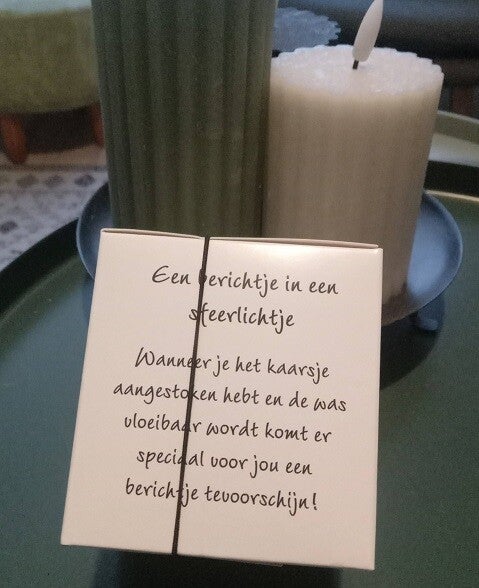 Een berichtje in een
sfeerlichtje
Wanneer je het kaarsje
aangestoken hebt en de was
vloeibaar wordt komt er
speciaal voor jou een
berichtje tevoorschijn!